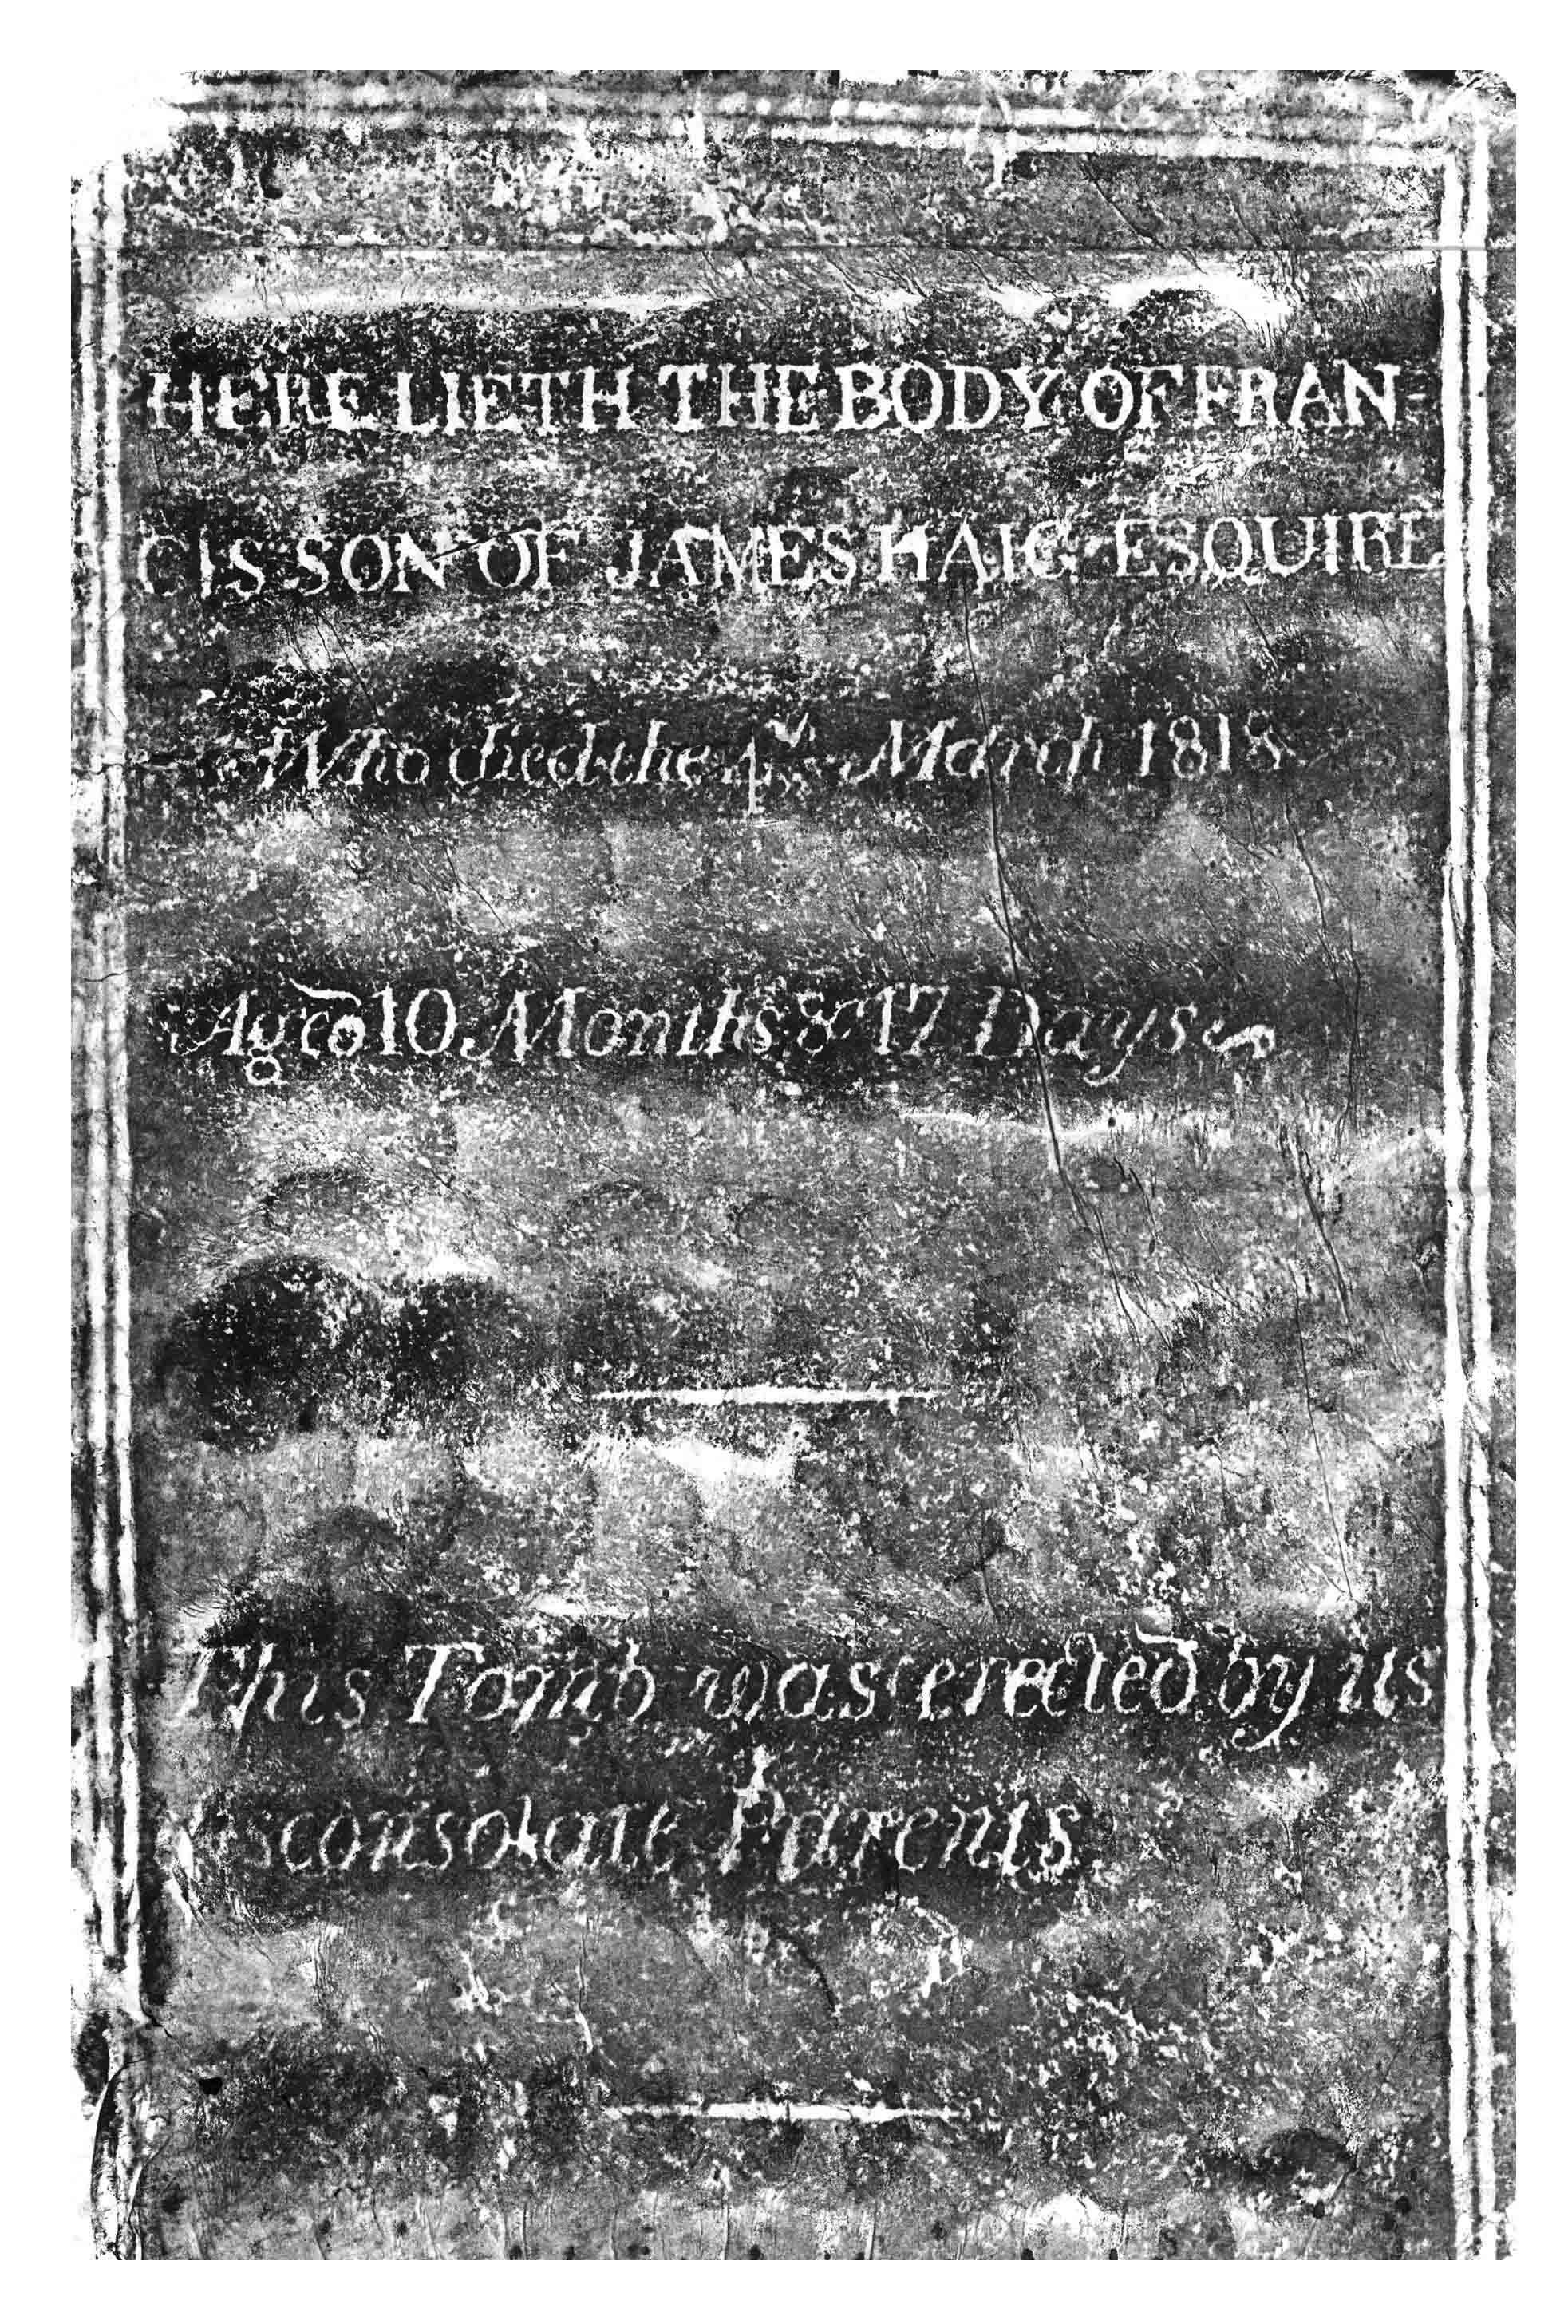 HERE LIETH THE BODY OF FRAN-
CIS SON OF JAMES HAIG ESQUIRE
Who died the March 1818
Aged 10 Months & 17 Days
This Tomb was erected by its
disconsolate Parents